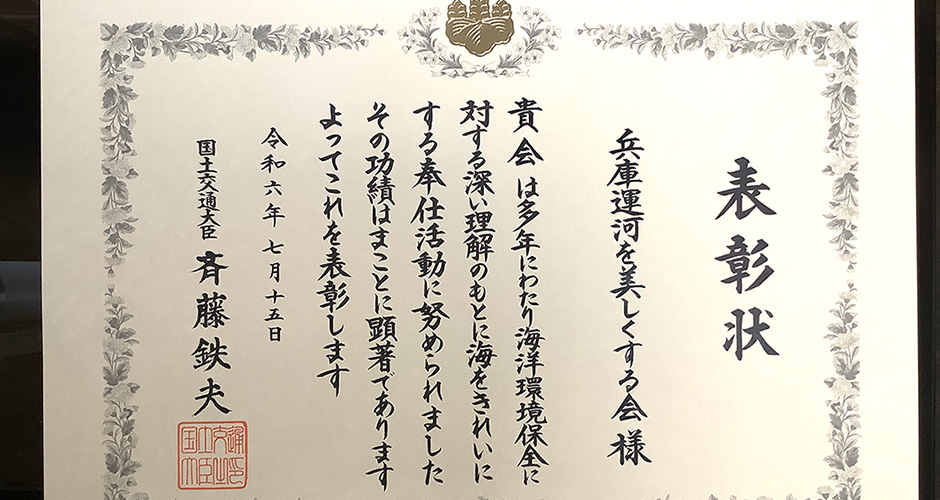 表彰状
兵庫運河を美しくする会 様
貴会は多年にわたり海洋環境保全に
対する深い理解のもとに海をきれいに
する奉仕活動に努められました
その功績はまことに顕著であります
よってこれを表彰します
令和六年七月十五日
国土交通大臣 斉藤鉄夫
国土交通大臣之印